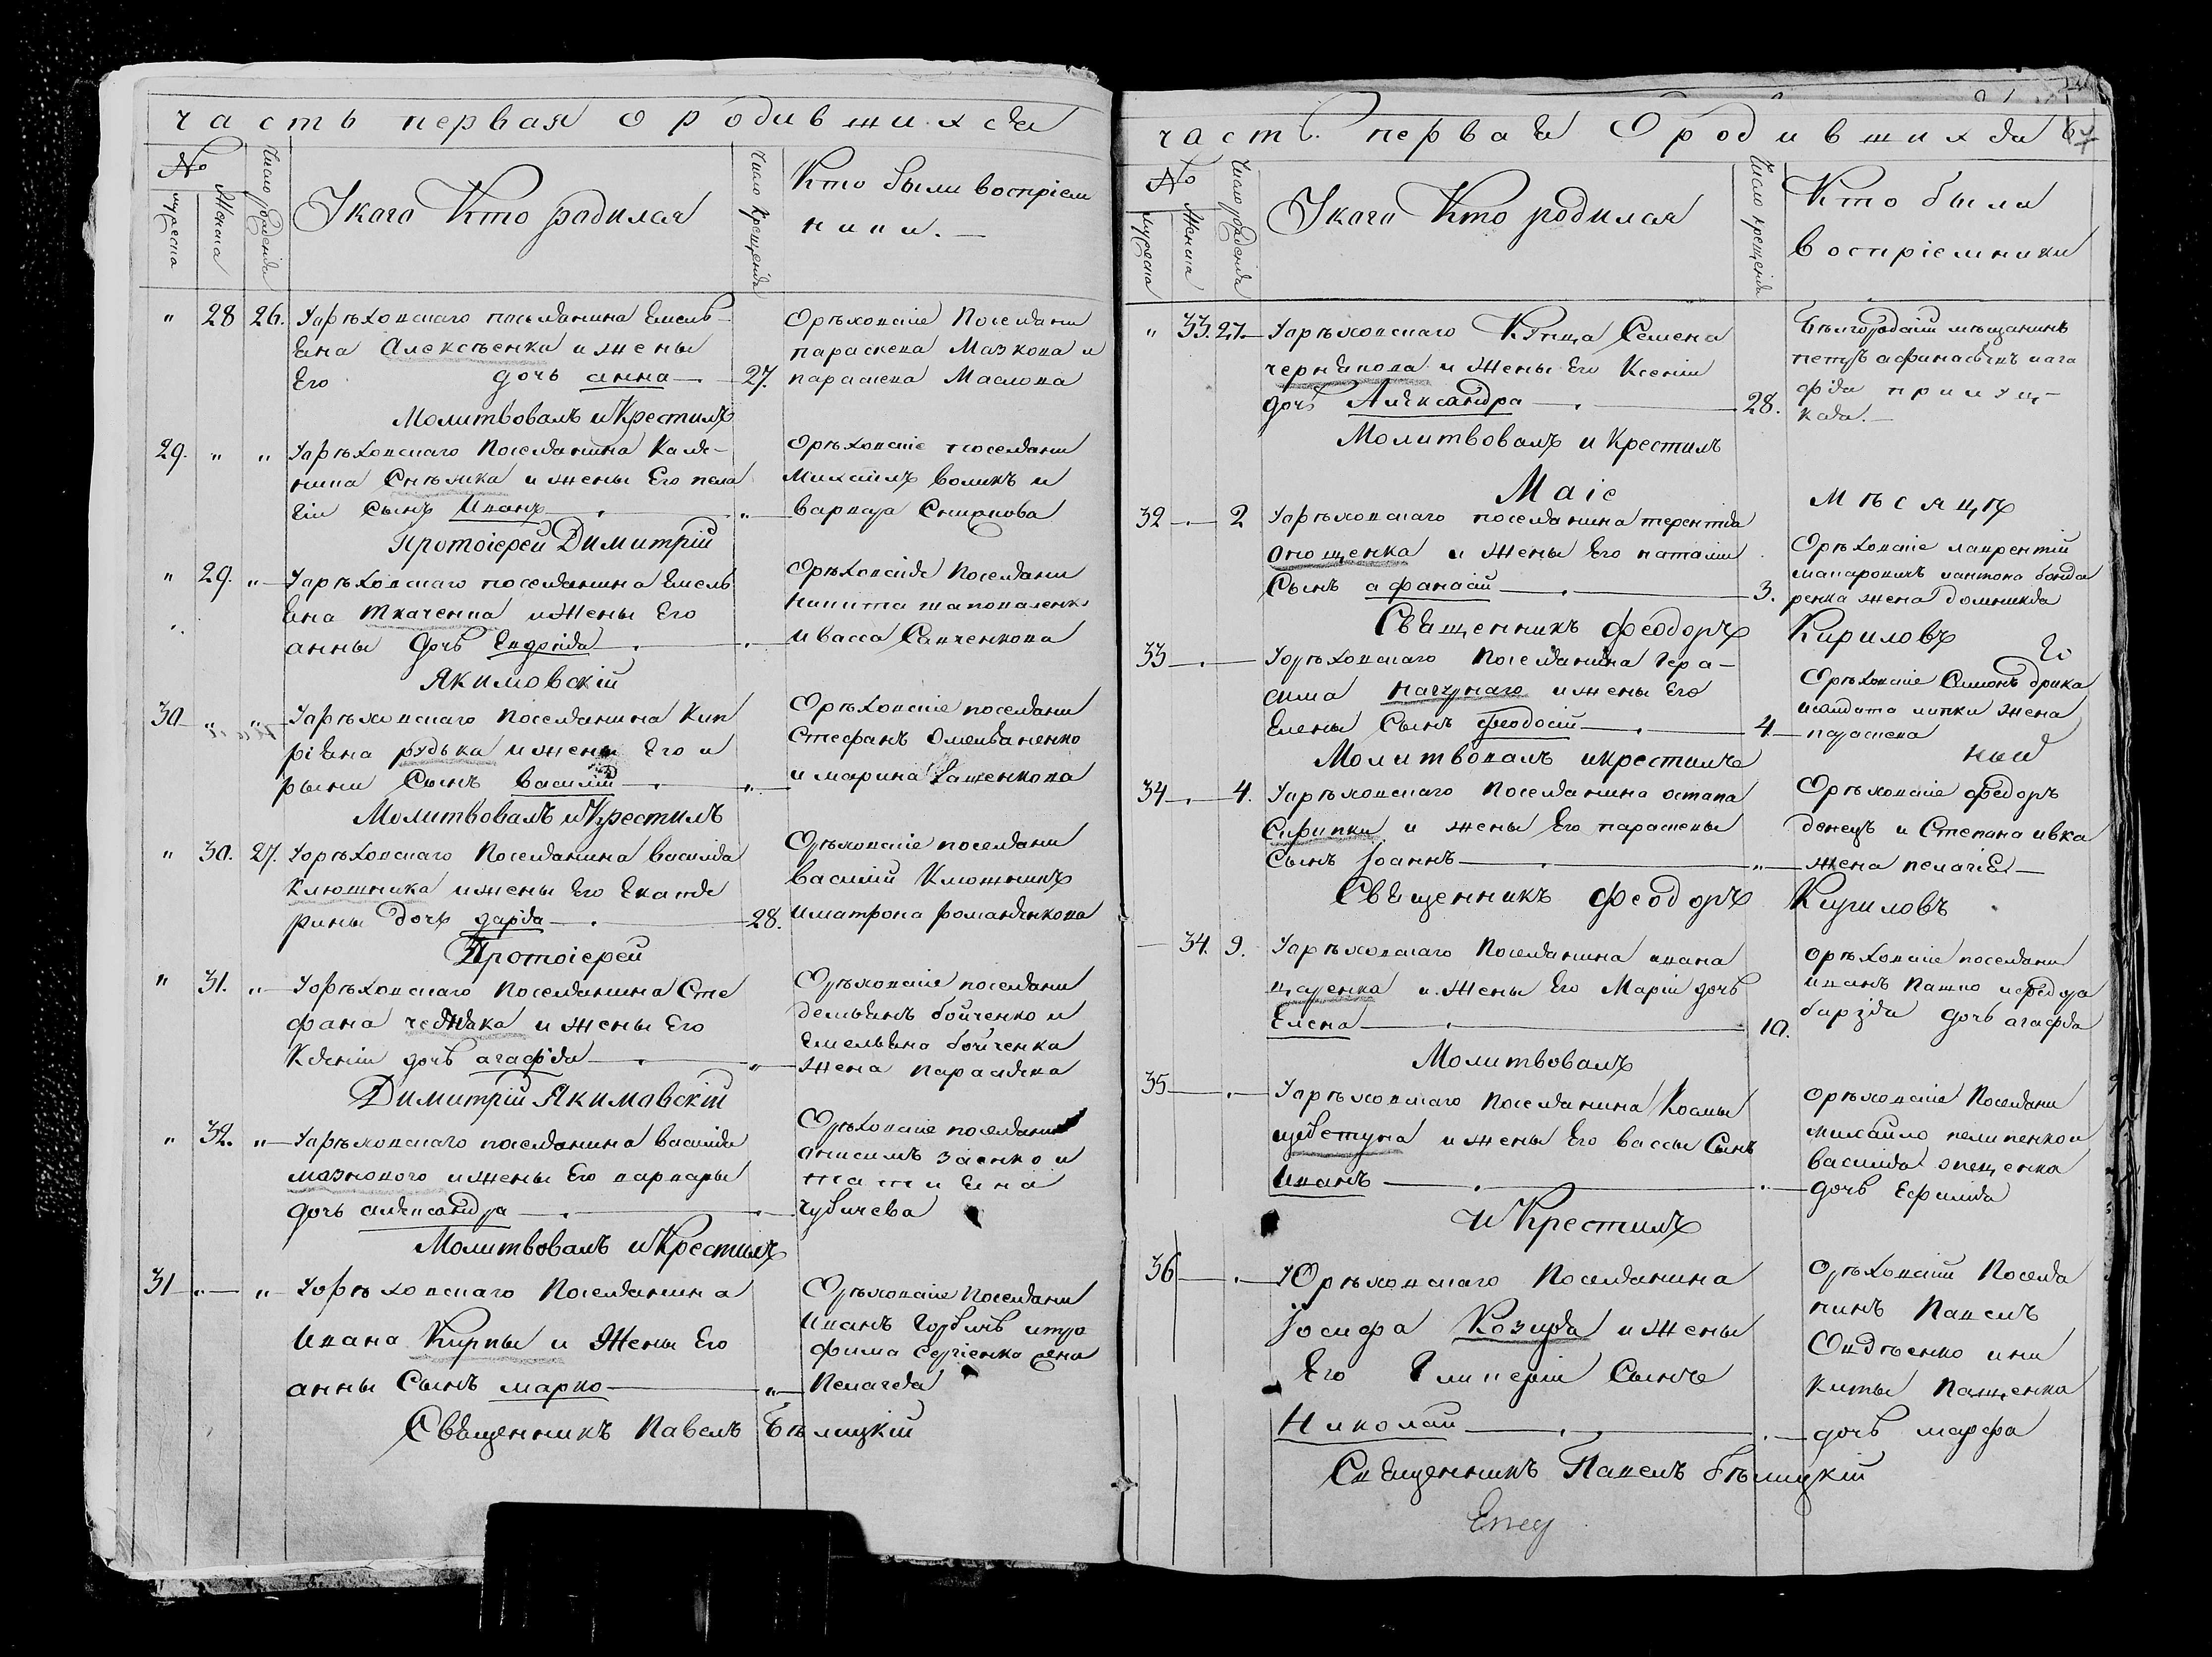 часть первая о родившихся
№
мужеска
Женска
Число рожденія
Укого Кто родился
Число крещенія
Кто были воспріем
ники.
" 28 26. Уорѣховскаго поселянина Емель-
яна Алексѣенка и жены
Его дочь анна 27.
Орѣховскіе Поселяни
параскева Мазкова и
параскева Маслова
Молитвовалъ и Крестилъ
29. " " Уорѣховскаго Поселянина Кали-
ника Снѣжка и жены Его пела
гіи Сынъ Иванъ "
Орѣховскіе поселяни
Михаилъ воликъ и
варвара Смирнова
Протоіерей Димитрій
" 29. " Уорѣховскаго поселянина Емель
яна Ткаченка и жены Его
анны дочь Евдокія
Орѣховскія Поселяни
Никита шаповаленко
и васса Савченкова
Якимовскій
30 " " Уорѣховскаго поселянина Кип
ріяна рудька и жены Его и
рыни Сынъ василій "
Орѣховскіе поселяни
Стефанъ Омельяненко
и марина
Молитвовалъ и Крестилъ
" 30. 27. Уорѣховскаго Поселянина василія
Клюшника и жены Его Екате
рины дочь дарія 28.
Орѣховскіе поселяни
василій Клюшникъ
и матрона романенкова
Протоіерей
" 31. " Уорѣховскаго Поселянина Сте
фана и жены Его
Ксеніи дочь агафія "
Орѣховскіе поселяни
демьянъ бойченко и
Емельяна бойченка
жена параскева
Димитрій Якимовскій
" 32. " Уорѣховскаго поселянина василія
мазнового и жены Его варвары
дочь александра
Орѣховскіе поселяни
анисимъ заенко и
татіяна
чубичева
Молитвовалъ и Крестилъ
31 " " Уорѣховскаго Поселянина
Ивана Кирпы и Жены Его
анны Сынъ марко "
Орѣховскіе Поселяни
Иванъ Горбачь и тро
фима Сергіенка жена
Пелагея
Священникъ Павелъ Бѣлицкій
часть первая О родившихся 67
№
мужеска
Женска
Число рожденія
Укого Кто родился
Число крещенія
Кто были
воспріемники
" 33. 27. Уорѣховскаго Купца Семена
чернякова и Жены Его Ксеніи
дочь Александра 28.
Бѣлгородскій мѣщанинъ
Молитвовалъ и Крестилъ
Маіе Мѣсяцъ
32 2 Уорѣховскаго поселянина терентія
онощенка и Жены Его наталіи
Сынъ афанасій 3.
Орѣховскіе лаврентій
макаровичъ и антона бонда
ренка жена домникія
Священникъ Феодоръ Кириловъ
33 Уорѣховскаго Поселянина гера-
сима и жены Его
Елены Сынъ феодосій 4
Орѣховскіе Симонъ
липки жена
параскева
Молитвовалъ и крестилъ
34 4. Уорѣховскаго Поселянина остапа
Скрипки и жены Его параскевы
Сынъ Іоаннъ "
Орѣховскіе федоръ
донецъ и Степана ивка
жена пелагія
Священникъ Феодоръ Кириловъ
34. 9. Уорѣховскаго Поселянина ивана
и Жены Его Маріи дочь
Елена 10.
орѣховскіе поселяни
иванъ Пашко и федора
дочь агафія
Молитвовалъ
35 Уорѣховскаго поселянина Космы
щебетуна и жены Его вассы Сынъ
Иванъ
орѣховскіе Поселяни
михайло пелипенко и
василія онещенка
дочь Ефимія
и Крестилъ
36 УОрѣховскаго Поселянина
Іосифа Козыря и жены
Его Гликеріи Сынъ
Николай
Орѣховскій Поселя
нинъ Павелъ
Овдѣенко и ни
киты Пащенка
дочь марфа
Священникъ Павелъ бѣлицкій